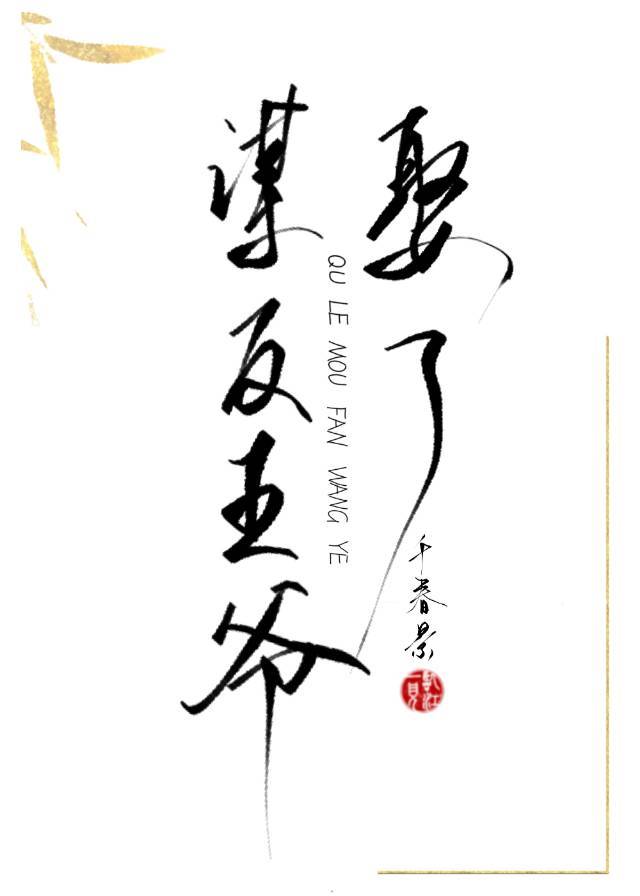 娶了
谋反王爷
QU LE MOU FAN WANG YE
千春景